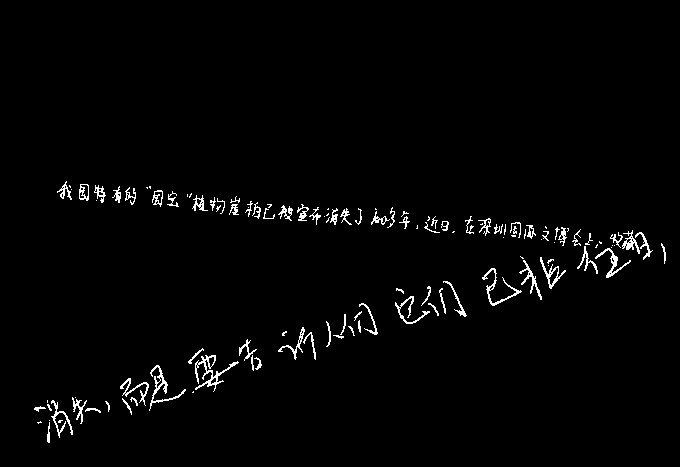 我国特有的“国宝”植物崖柏已被宣布消失了多年，近日，在深圳国际文博会上，收藏
消失，而是要告诉人们它们已非往日，